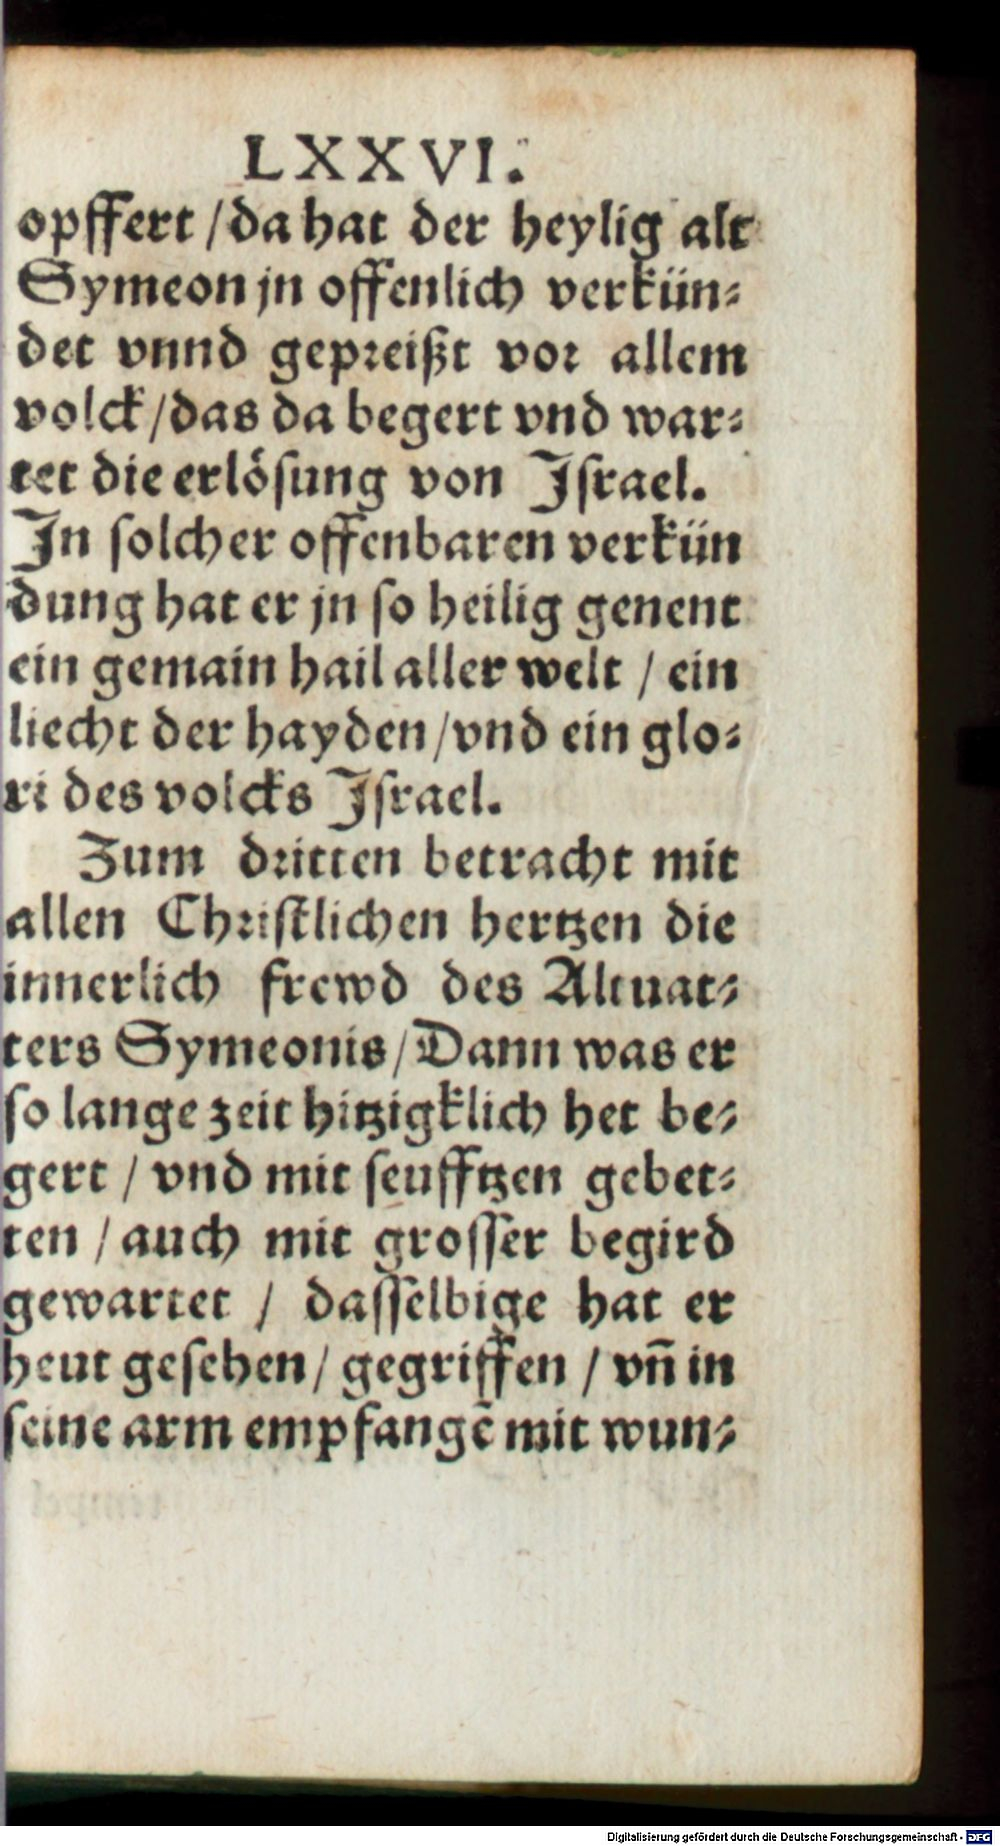 LXXVI.
opffert / da hat der heylig alt
Symeon jn offenlich verkün⸗
det vnnd gepreißt vor allem
volck / das da begert vnd war⸗
tet die erlöſung von Jſrael.
Jn ſolcher offenbaren verkün
dung hat er jn ſo heilig genent
ein gemain hail aller welt / ein
liecht der hayden / vnd ein glo⸗
ri des volcks Jſrael.
Zum dritten betracht mit
allen Chriſtlichen hertzen die
innerlich frewd des Altuat⸗
ters Symeonis / Dann was er
ſo lange zeit hitzigklich het be⸗
gert / vnd mit ſeufftzen gebet⸗
ten / auch mit groſſer begird
gewartet / daſſelbige hat er
heut geſehen / gegriffen / vn̄ in
ſeine arm empfangē mit wun⸗
Digitalisierung gefördert durch die Deutsche Forschungsgemeinschaft - DFG